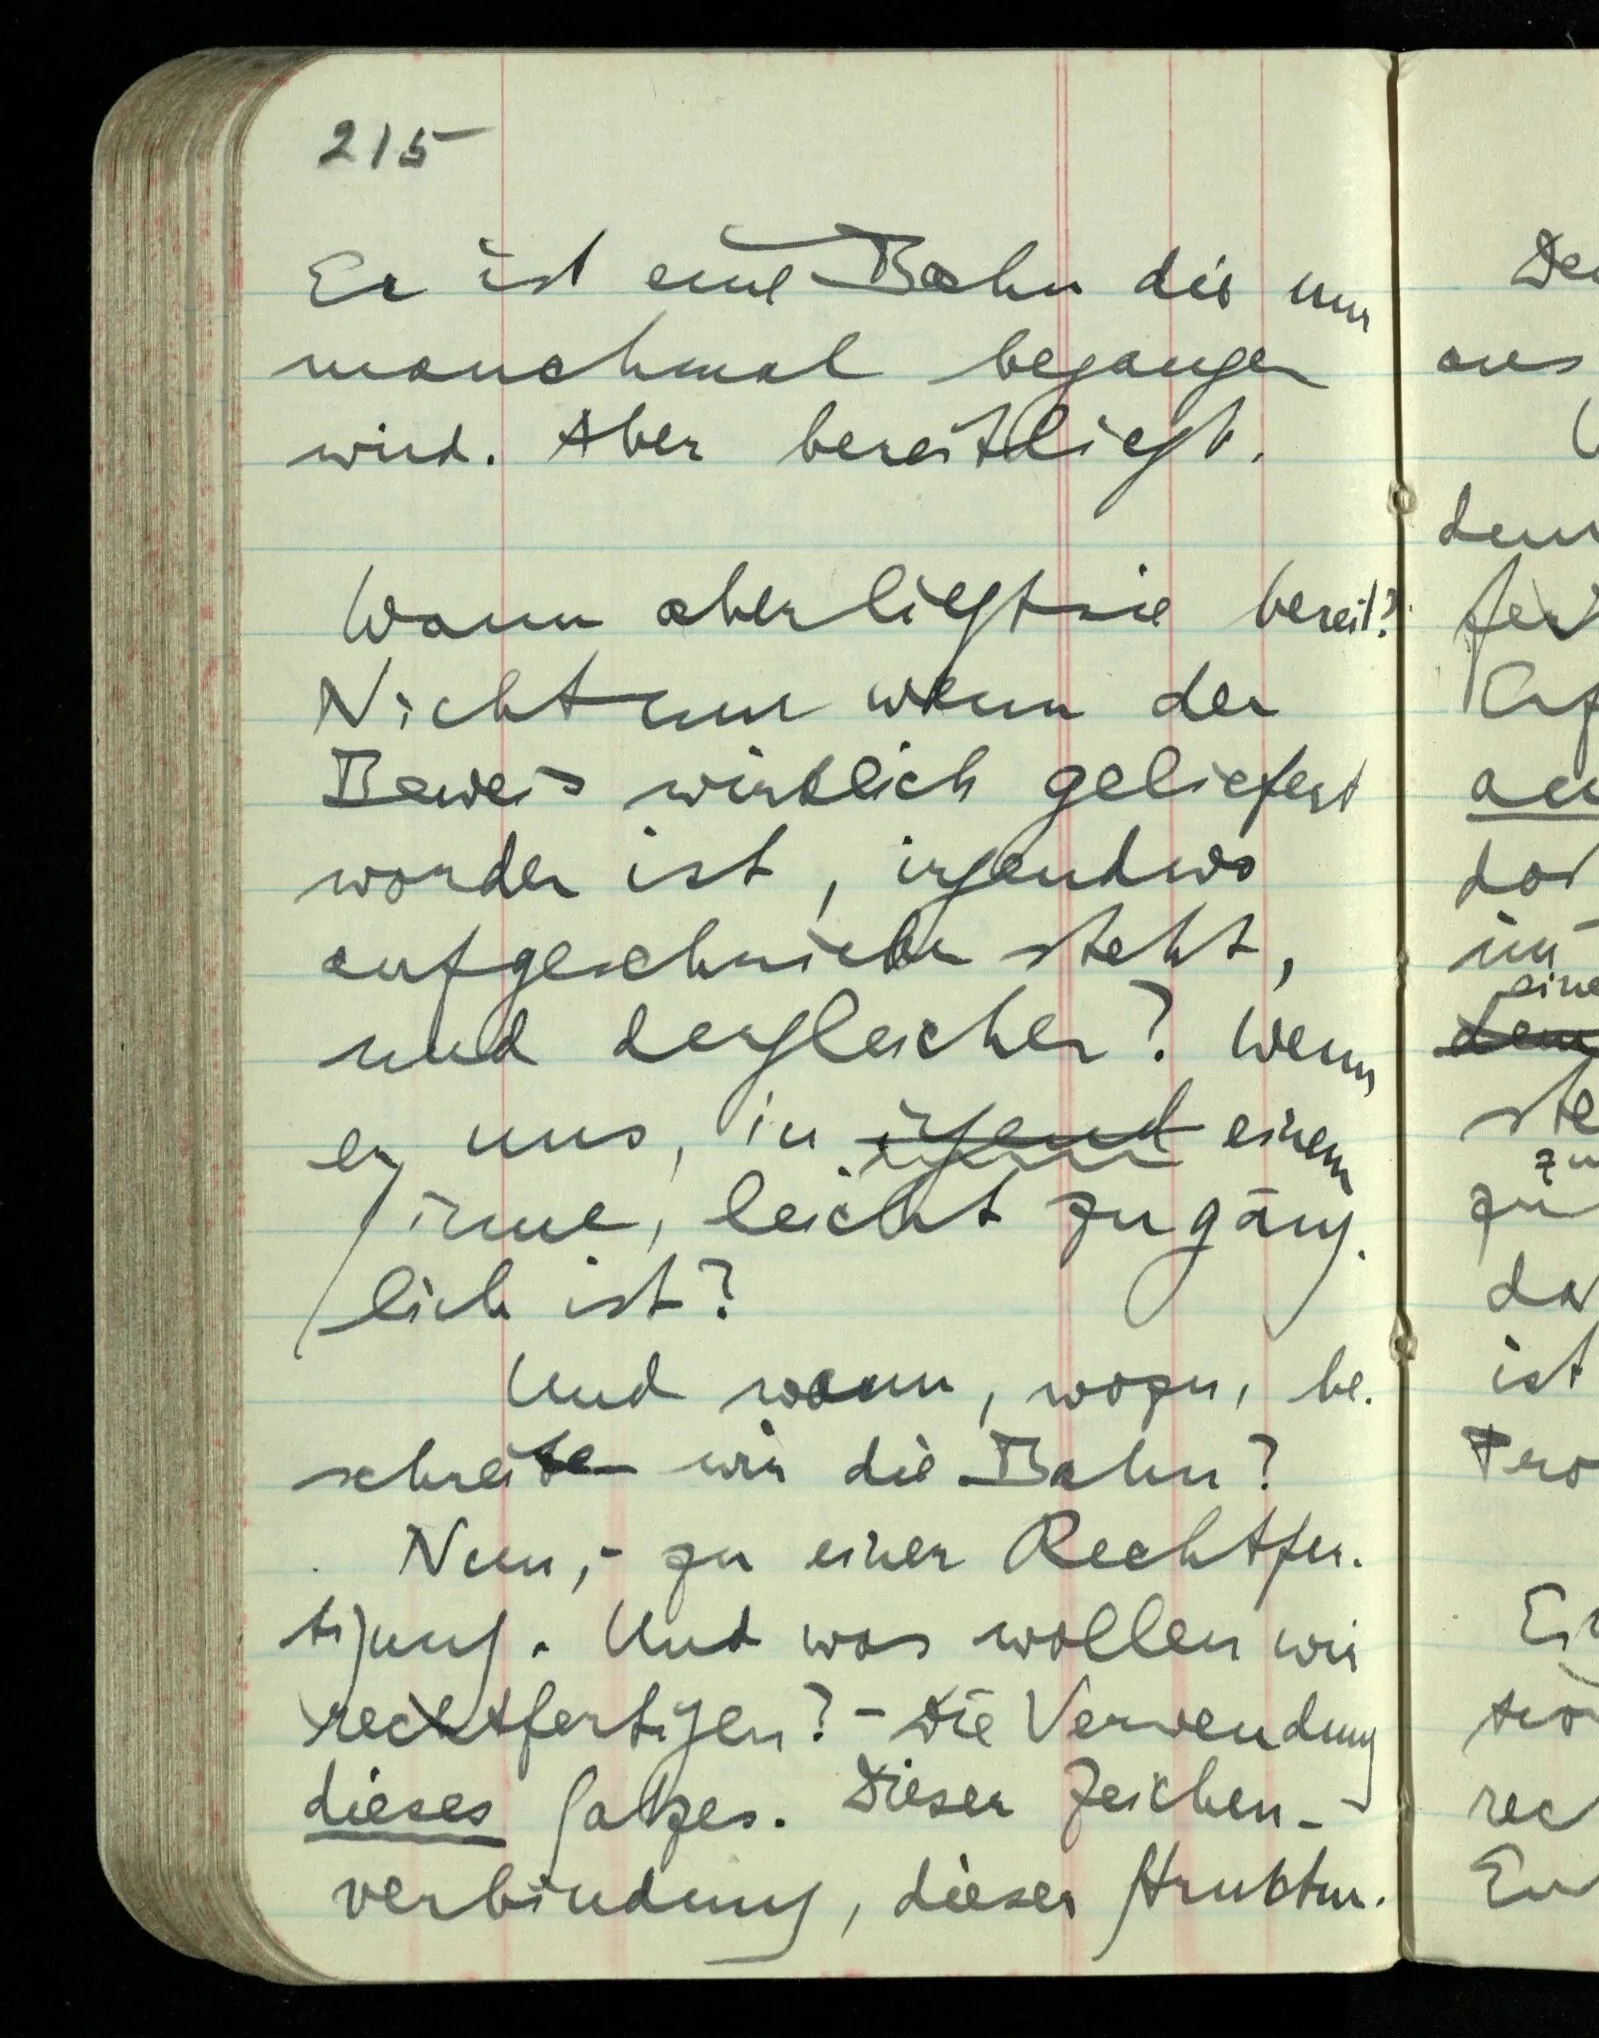 215
Er ist eine Bahn die nur
manchmal begangen
wird. Aber bereitliegt.
Wann aber liegt sie bereit?
Nicht nur wenn der
Beweis wirklich geliefert
worden ist, irgendwo
aufgeschrieben steht,
und dergleichen? Wenn
er uns, in irgend einem
Sinne, leicht zugäng-
lich ist?
Und wann, wozu, be-
schreiten wir die Bahn?
Nun, - zu einer Rechtfer-
tigung. Und was wollen wir
rechtfertigen? - Die Verwendung
dieses Satzes. Dieser Zeichen-
verbindung, dieser Struktur.
aus
ist